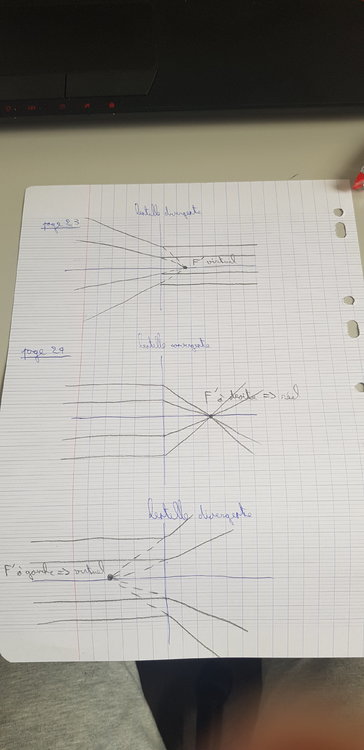 Lentille divergente
page 23
F' virtuel
Lentille convergente
page 24
F' à droite => réel
Lentille divergente
F' à gauche => virtuel